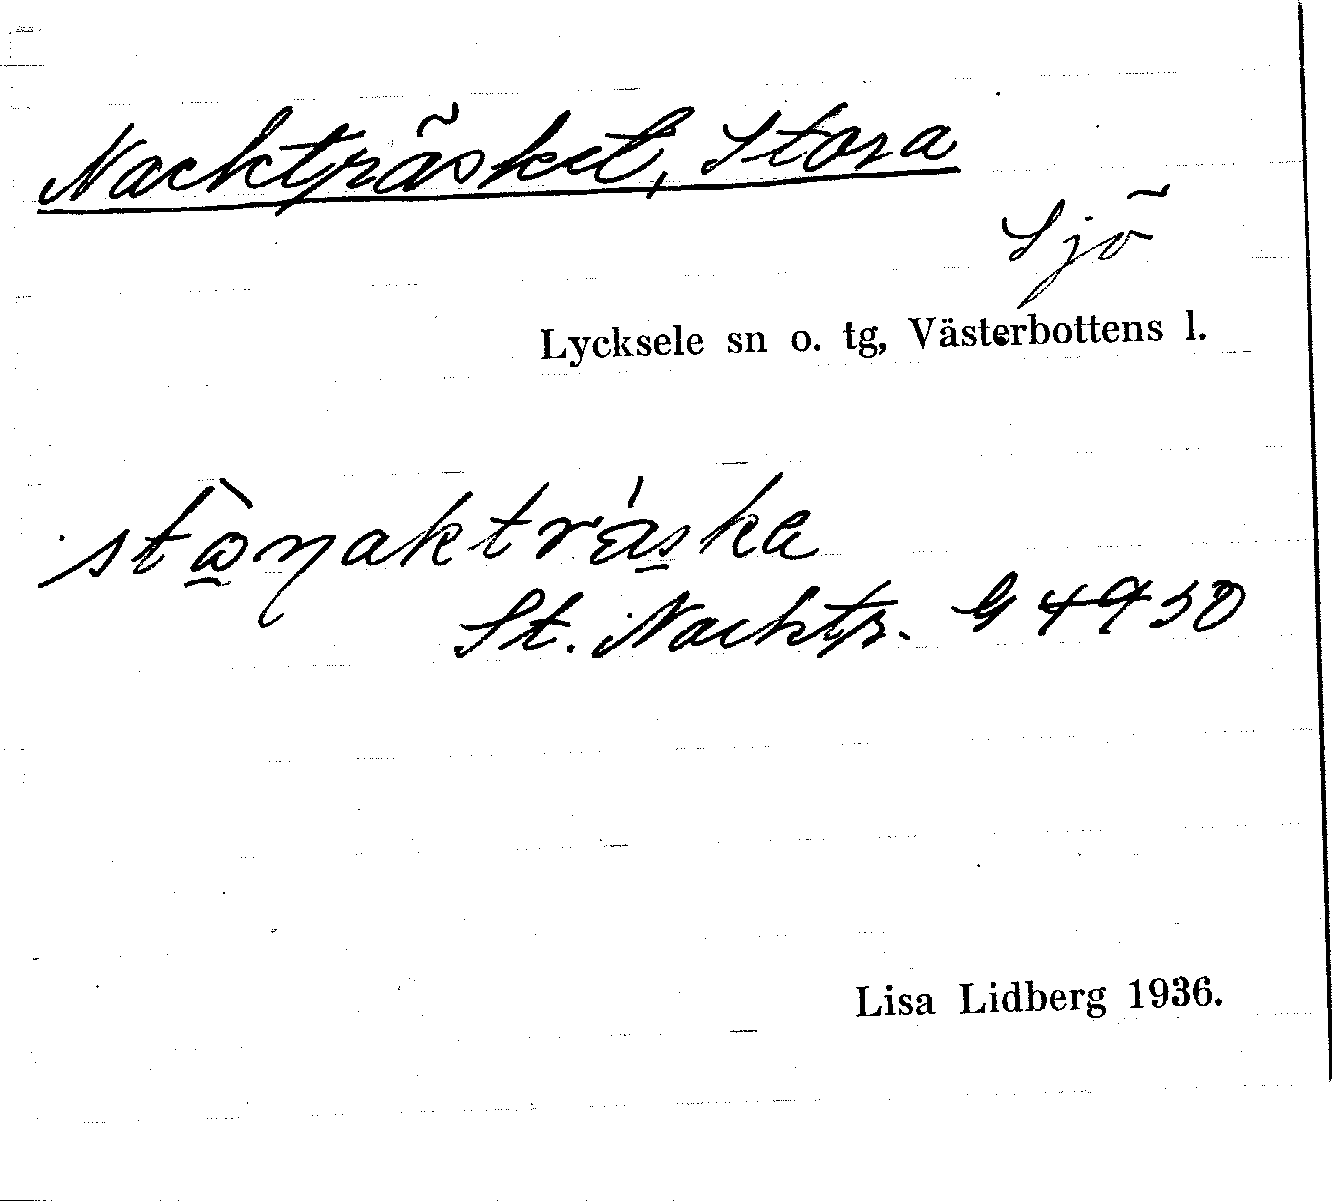 Nackträsket, Stora
Sjö
Lycksele sn o. tg, Västerbottens l.
St. Nacktr. G 4950
Lisa Lidberg 1936.